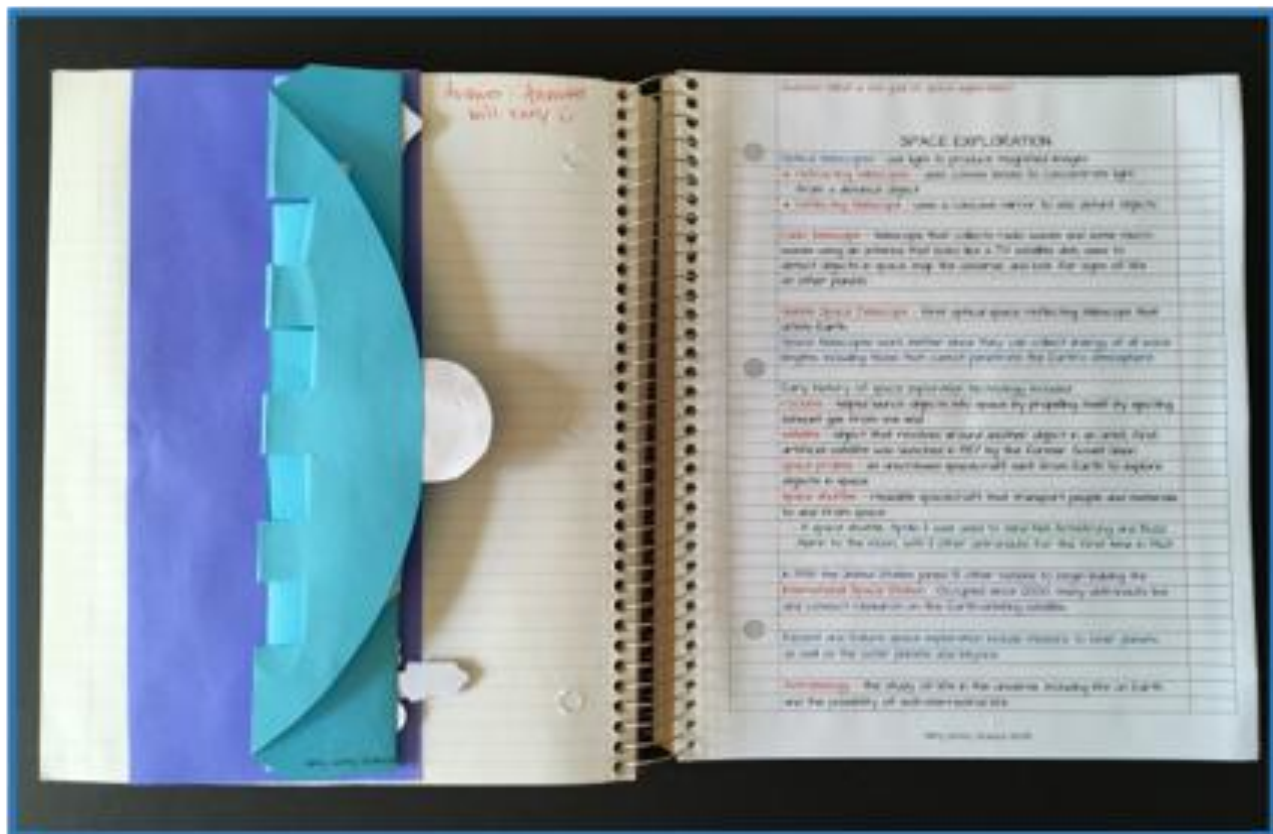 Answer: Answers
will vary :)
Question: What is one goal of space exploration?
SPACE EXPLORATION
Optical telescopes - use light to produce magnified images
• refracting telescope - uses convex lenses to concentrate light
from a distance object
• reflecting telescope - uses a concave mirror to see distant objects
Radio telescope - telescope that collects radio waves and some micro-
waves using an antenna that looks like a TV satellite dish; used to
detect objects in space, map the universe, and look for signs of life
on other planets
Hubble Space Telescope - first optical space reflecting telescope that
orbits Earth
Space telescopes work better since they can collect energy of all wave
lengths, including those that cannot penetrate the Earth's atmosphere
Early history of space exploration technology included:
rockets - helped launch objects into space by propelling itself by ejecting
exhaust gas from one end
satellite - object that revolves around another object in an orbit; first
artificial satellite was launched in 1957 by the former Soviet Union
space probe - an uncrewed spacecraft sent from Earth to explore
objects in space
Space shuttles - reusable spacecraft that transport people and materials
to and from space
A space shuttle, Apollo 11, was used to send Neil Armstrong and Buzz
Aldrin to the moon, with 1 other astronauts for the first time in 1969
In 1998 the United States joined 15 other nations to begin building the
International Space Station. Occupied since 2000, many astronauts live
and conduct research on the Earth-orbiting satellite.
Recent and future space exploration include missions to inner planets,
as well as the outer planets and beyond.
Astrobiology - the study of life in the universe, including life on Earth
and the possibility of extraterrestrial life